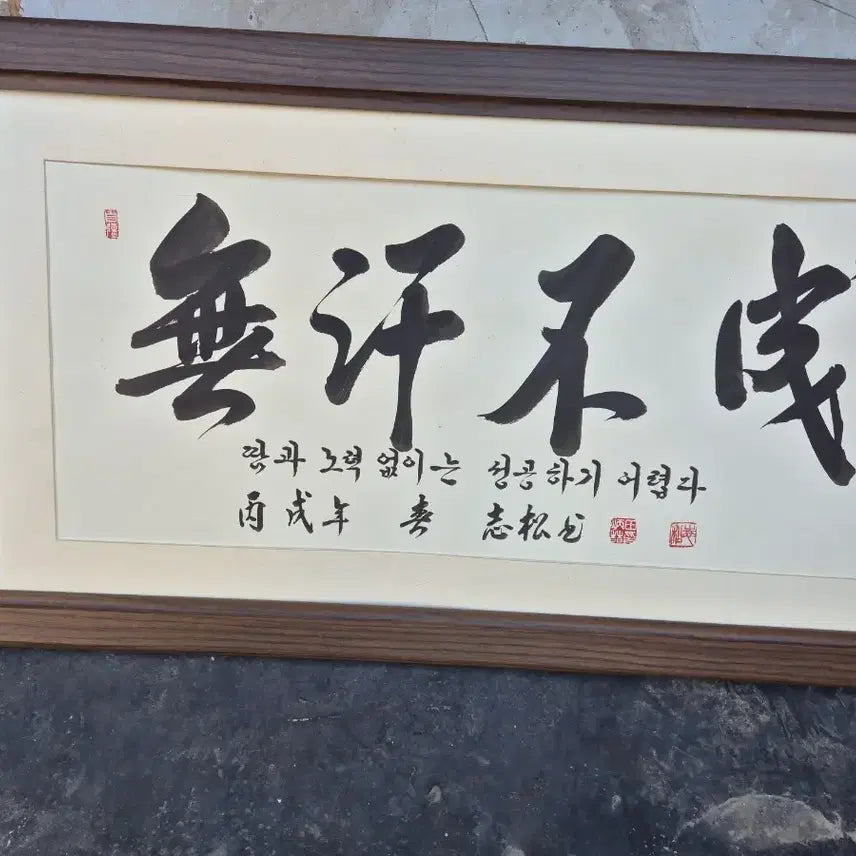 無汗不成
땀과 노력 없이는 성공하기 어렵다
丙戌年 春 志松書